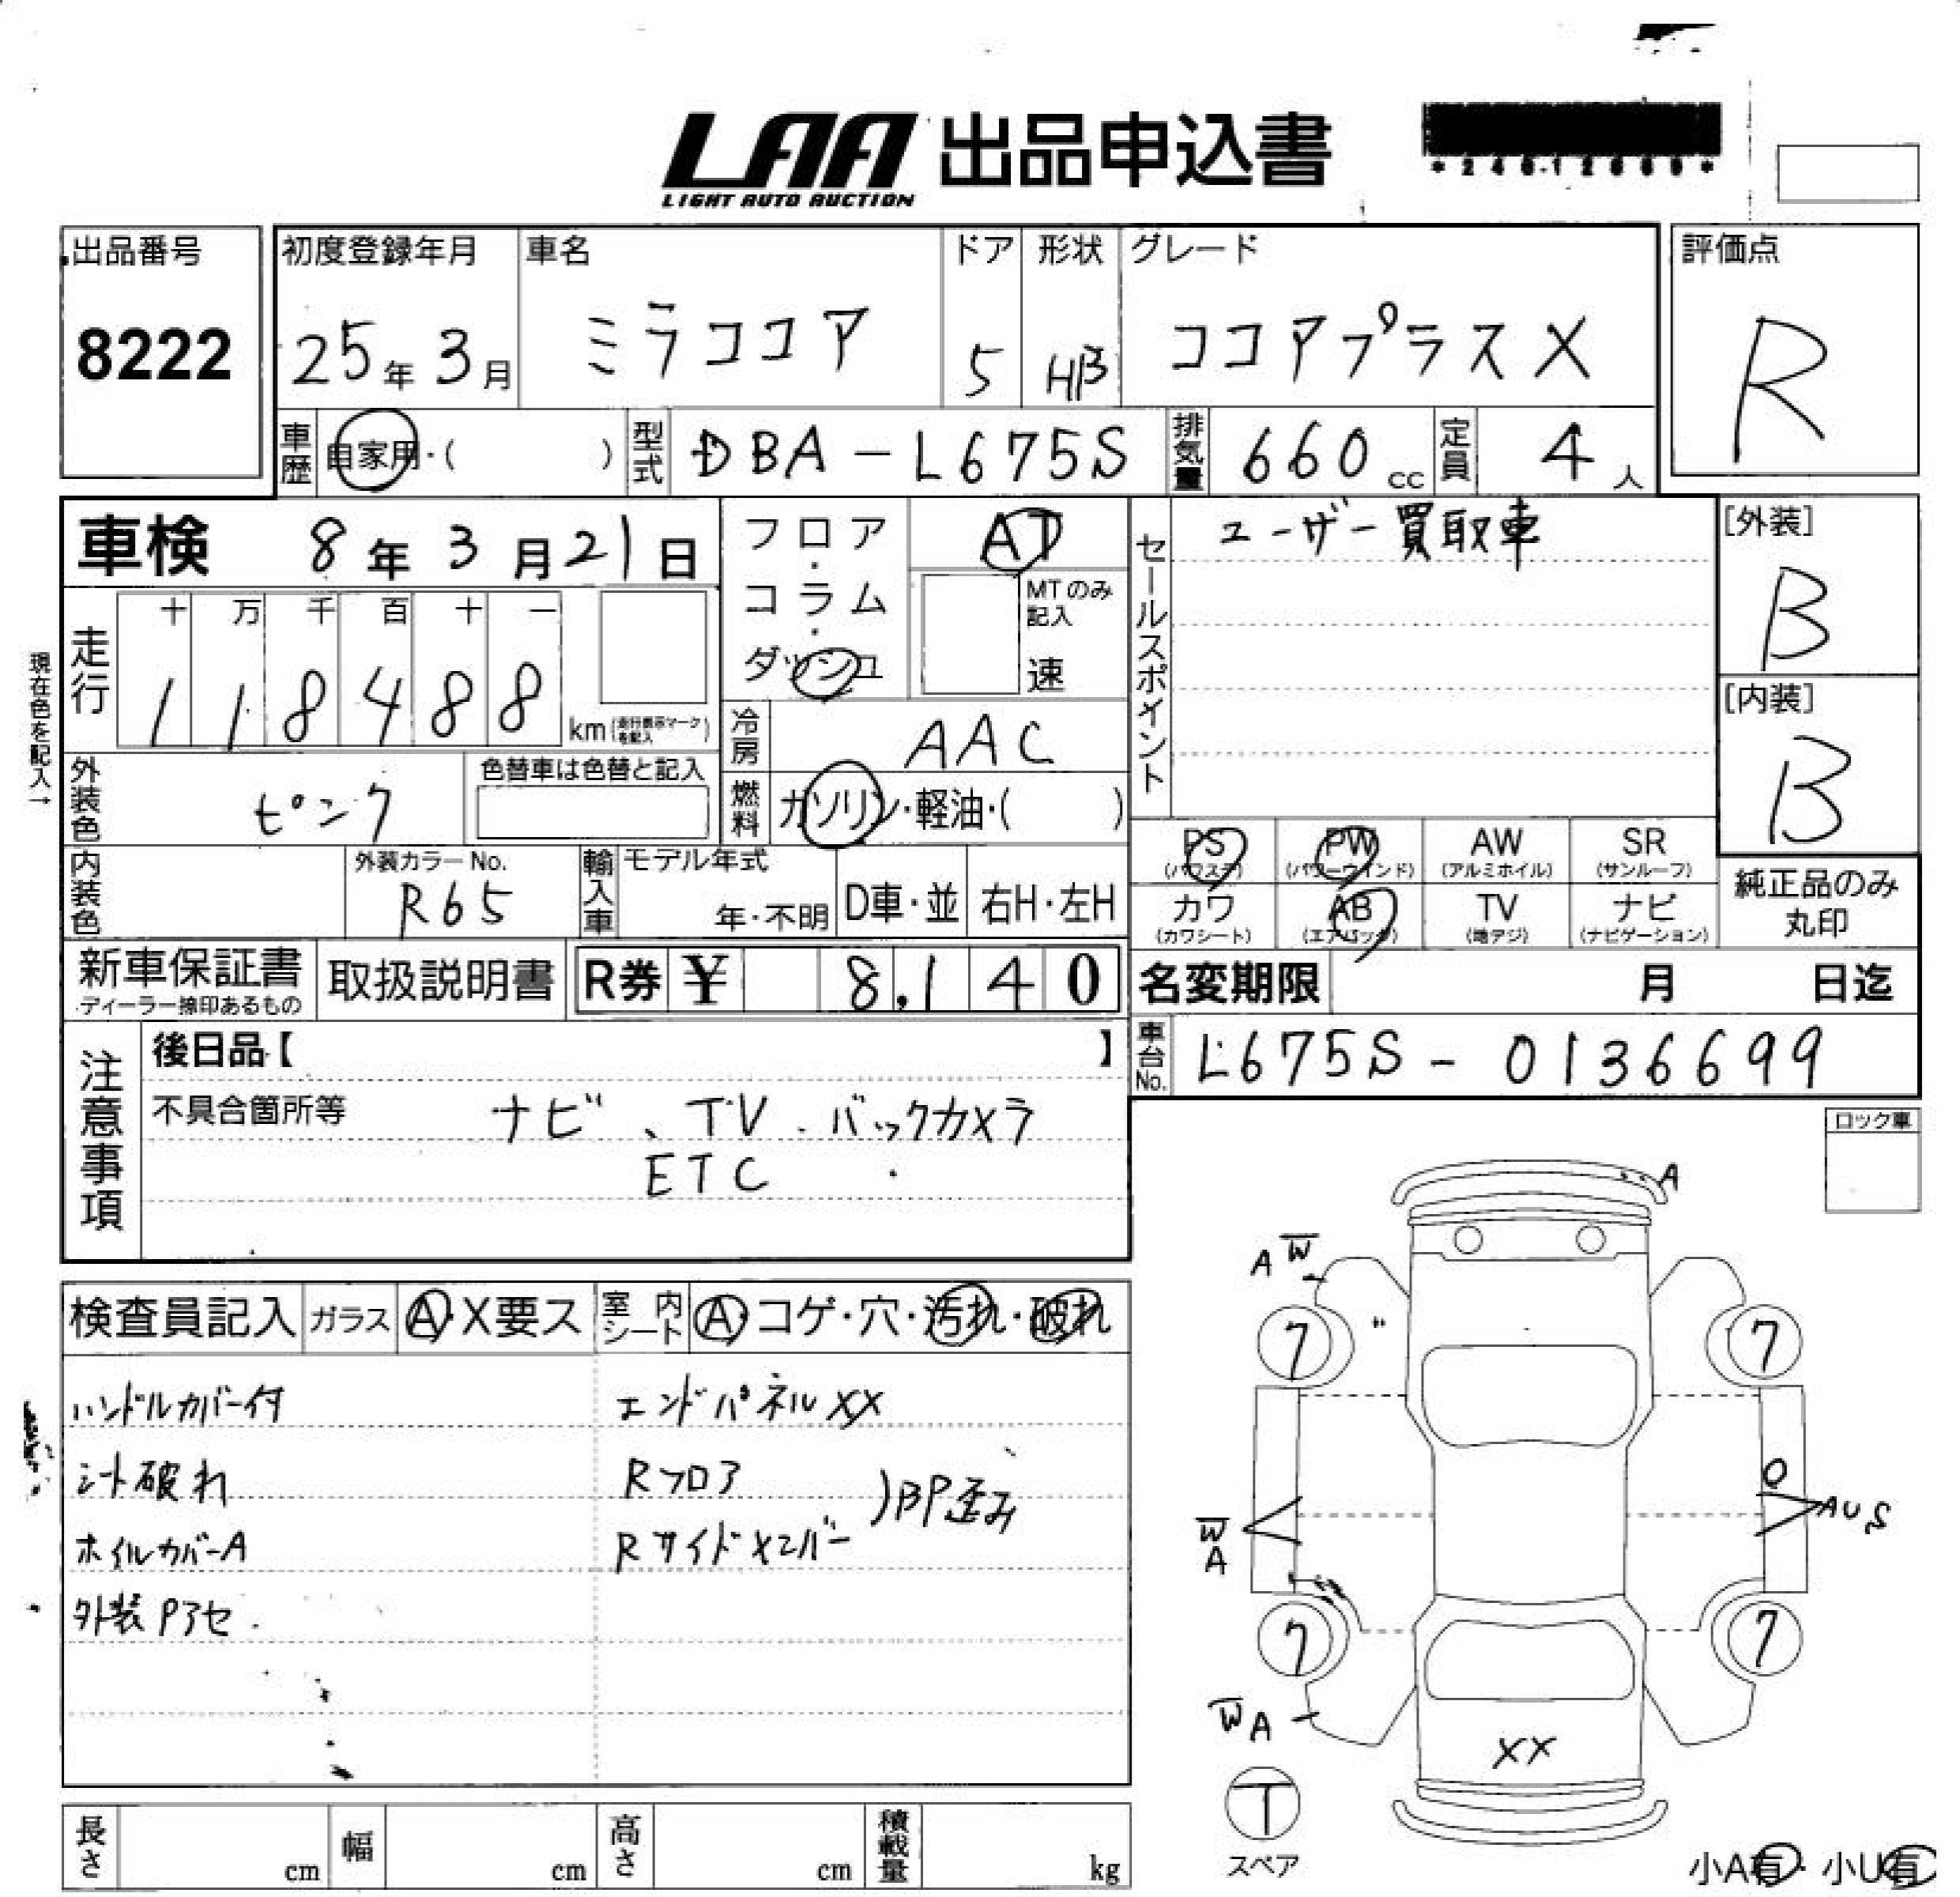 LAA 出品申込書
LIGHT AUTO AUCTION
出品番号
8222
初度登録年月
25年 3月
車名
ミラココア
ドア
5
形状
HB
グレード
ココアプラスX
評価点
R
車歴 自家用・( )
型式 DBA-L675S
排気量 660 cc
定員 4人
車検 8年 3月 21日
フロア・コラム・ダッシュ
AT
MTのみ記入
速
セールスポイント
ユーザー買取車
[外装]
B
[内装]
B
現在色を記入→
走行
十 万 千 百 十 一
1 1 8 4 8 8
km
冷房 AAC
燃料 ガソリン・軽油・( )
外装色 ピンク
色替車は色替と記入
内装色
外装カラーNo.
R65
輸入車
モデル年式
年・不明
D車・並
右H・左H
PS (パワステ)
PW (パワーウインド)
AW (アルミホイル)
SR (サンルーフ)
カワ (カワシート)
AB (エアバッグ)
TV (地デジ)
ナビ (ナビゲーション)
純正品のみ
丸印
新車保証書
ディーラー捺印あるもの
取扱説明書
R券 ¥ 8,140
名変期限 月 日迄
車台No. L675S-0136699
注意事項
後日品【 】
不具合箇所等 ナビ、TV.バックカメラ
ETC
ロック車
検査員記入
ガラス A・X要ス
室内シート A・コゲ・穴・汚れ・破れ
ハンドルカバー付
シート破れ
ホイルカバーA
外装Pアセ
エンドパネルXX
Rフロア
Rサイドメンバー
)BP歪み
A
A W
7
7
W
A
AUS
7
7
W A
XX
T
スペア
小A有・小U有
長さ cm
幅 cm
高さ cm
積載量 kg